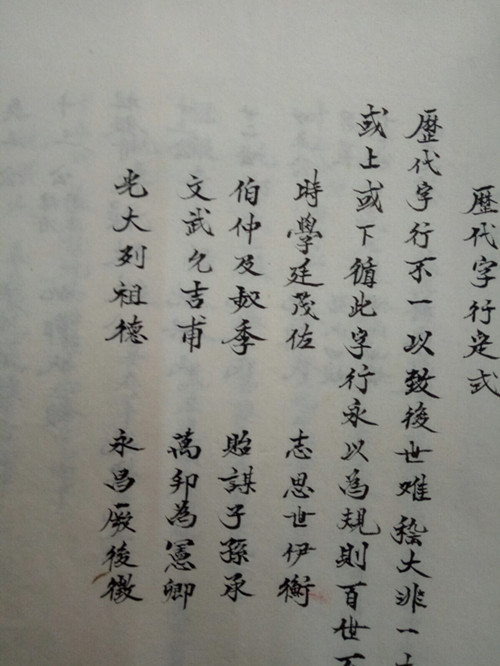 歷代字行定式
歷代字行不一以致後世难稽大非一
或上或下循此字行永以為規則百世不
時學廷茂佐 志思世伊衡
伯仲及叔季 貽謀子孫承
文武允吉甫 萬邦為憲卿
光大列祖德 永昌厥後徵